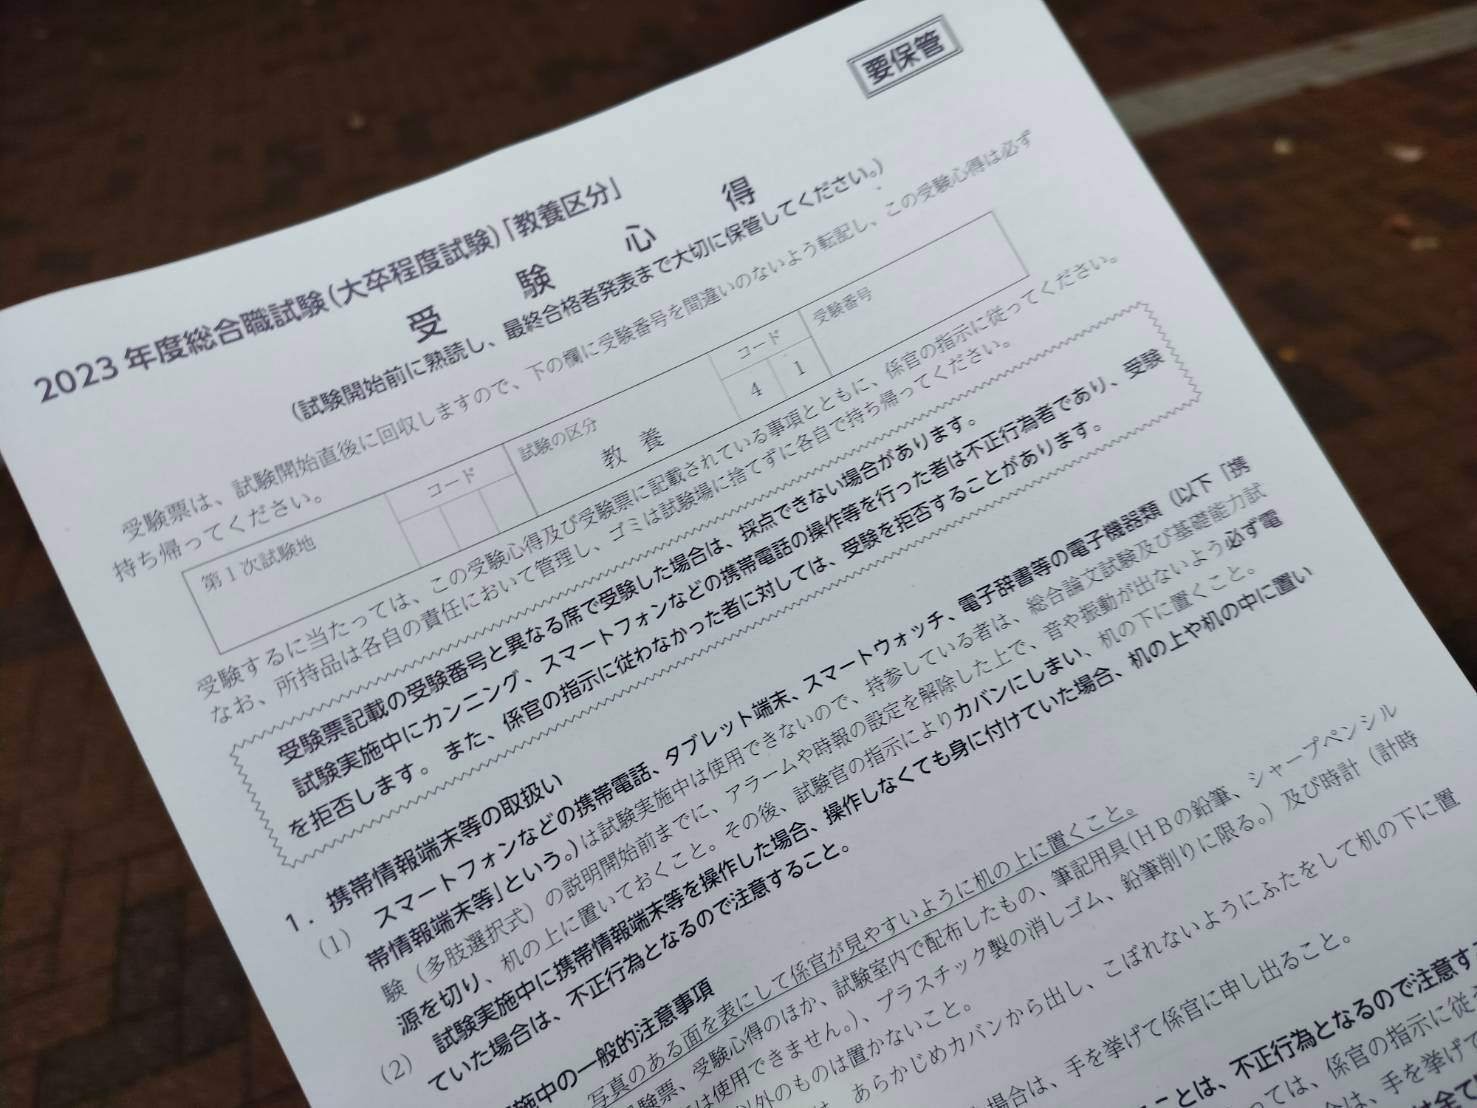 要保管
2023年度総合職試験(大卒程度試験)「教養区分」
受験心得
(試験開始前に熟読し、最終合格者発表まで大切に保管してください。)
受験票は、試験開始直後に回収しますので、下の欄に受験番号を間違いのないよう転記し、この受験心得は必ず
持ち帰ってください。
第1次試験地 コード 試験の区分 コード 受験番号
教養 4 1
受験するに当たっては、この受験心得及び受験票に記載されている事項とともに、係官の指示に従ってください。
なお、所持品は各自の責任において管理し、ゴミは試験場に捨てずに各自で持ち帰ってください。
受験票記載の受験番号と異なる席で受験した場合は、採点できない場合があります。
試験実施中にカンニング、スマートフォンなどの携帯電話の操作等を行った者は不正行為者であり、受験
を拒否します。また、係官の指示に従わなかった者に対しては、受験を拒否することがあります。
1．携帯情報端末等の取扱い
(1) スマートフォンなどの携帯電話、タブレット端末、スマートウォッチ、電子辞書等の電子機器類(以下「携
帯情報端末等」という。)は試験実施中は使用できないので、持参している者は、総合論文試験及び基礎能力試
験(多肢選択式)の説明開始前までに、アラームや時報の設定を解除した上で、音や振動が出ないよう必ず電
源を切り、机の上に置いておくこと。その後、試験官の指示によりカバンにしまい、机の下に置くこと。
(2) 試験実施中に携帯情報端末等を操作した場合、操作しなくても身に付けていた場合、机の上や机の中に置い
ていた場合は、不正行為となるので注意すること。
施中の一般的注意事項
写真のある面を表にして係官が見やすいように机の上に置くこと。
験票、受験心得のほか、試験室内で配布したもの、筆記用具(HBの鉛筆、シャープペンシル
は使用できません。)、プラスチック製の消しゴム、鉛筆削りに限る。)及び時計(計時
以外のものは置かないこと。
は、あらかじめカバンから出し、こぼれないようにふたをして机の下に置
場合は、手を挙げて係官に申し出ること。
ことは、不正行為となるので注意す
っては、係官の指示に従
は、手を挙げて